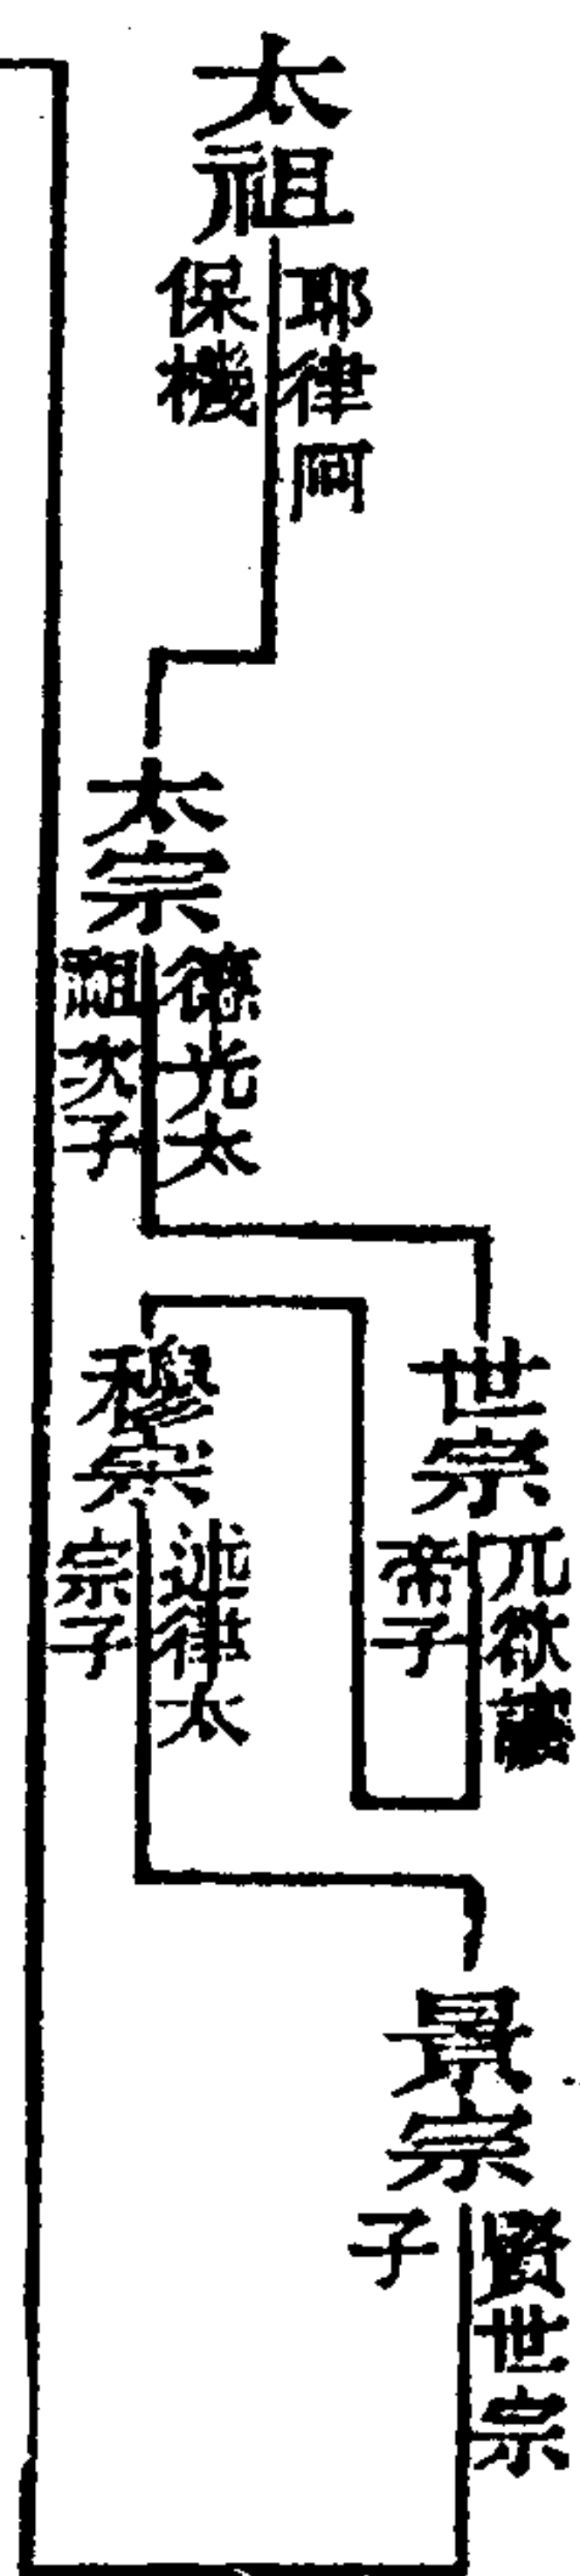 太祖
耶律阿
保機
太宗
德光太
祖次子
世宗
兀欲讓
帝子
穆宗
述律太
宗子
景宗
賢世宗
子